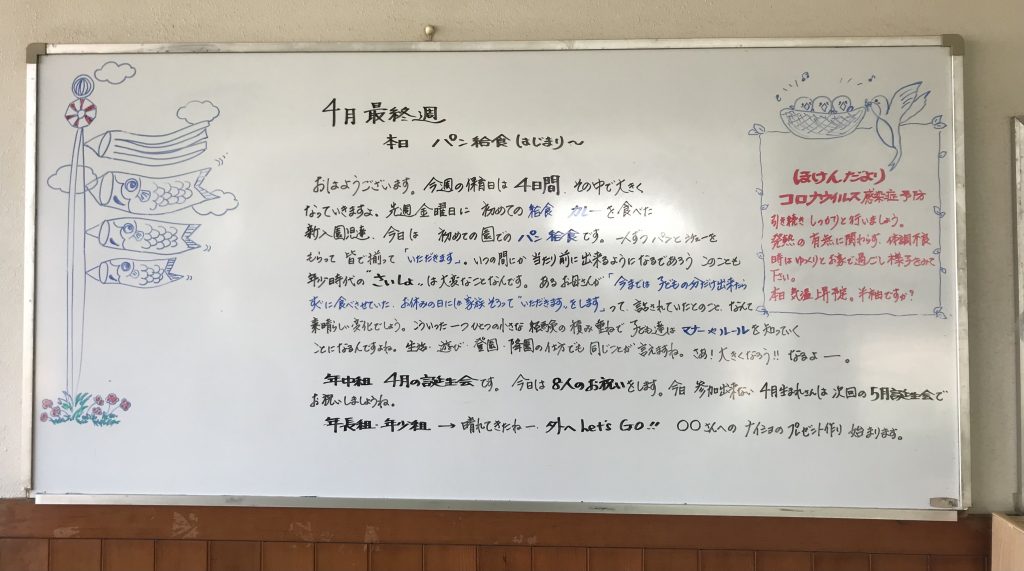 4月最終週
本日 パン給食はじまり～
おはようございます。今週の保育日は4日間、その中で大きく
なっていきますよ。先週金曜日に 初めての給食 カレーを食べた
新入園児達、今日は 初めての園でのパン給食です。一人ずつパンとジャムを
もらって 皆で揃って「いただきます」。いつの間にか当たり前に出来るようになるであろう このことも
年少時代の"さいしょ"は大変なことなんです。あるお母さんが「今までは子どもの分だけ出来たら
先に食べさせていた、お休みの日には家族そろって"いただきます"をします」って、話されていたとのこと、なんて
素晴しい変化でしょう。こういった一つひとつの小さな 経験の積み重ねで 子ども達は マナーやルールを知っていく
ことになるんですよね。生活・遊び・登園・降園の仕方でも 同じことが言えますね。さぁ!大きくなろう!! なるよー。
年中組 4月の誕生会です。今日は8人のお祝いをします。今日 参加出来ない 4月生まれさんは 次回の5月誕生会で
お祝いしましょうね。
年長組・年少組 → 晴れてきたねー、外へ Let's GO!! ○○さんへの ナイショの プレゼント作り 始まります。
(ほけんだより)
コロナウイルス感染症予防
引き続き しっかりと行いましょう。
発熱の有無に関わらず、体調不良
時はゆっくりとお家で過ごし様子をみて
下さい。
本日 気温上昇予定。半袖ですか?